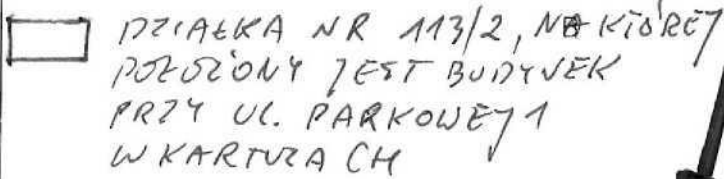 DZIAŁKA NR 113/2, NA KTÓREJ
POŁOŻONY JEST BUDYNEK
PRZY UL. PARKOWEJ 1
W KARTUZACH